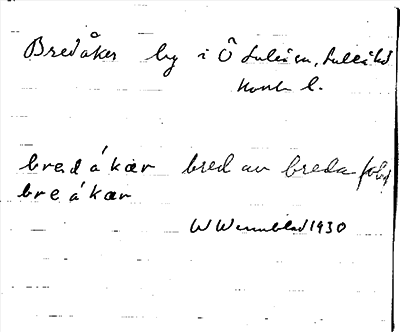 Bredåker by i Ö Luleå sn, Luleå hd
Norrb l.
bredákær bred av breda
breákær
W Wennblad 1930